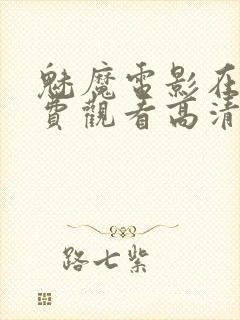 魅魔雷影在
費觀看高清
路七紫